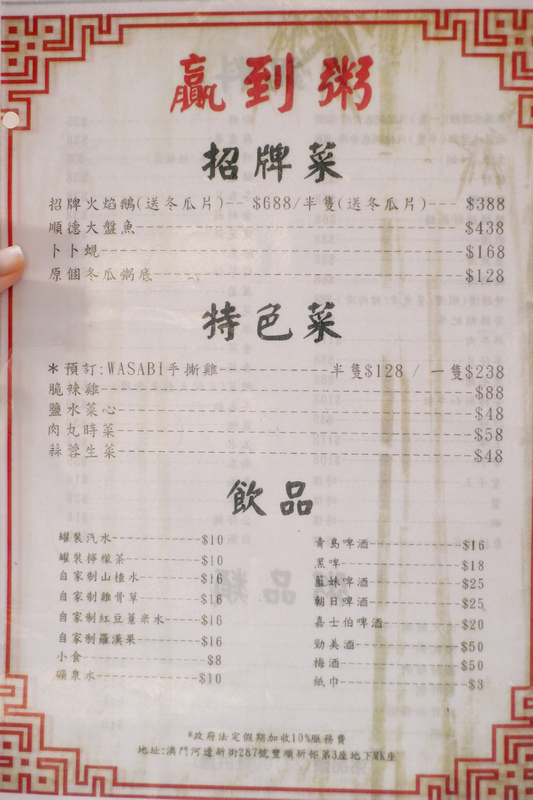 贏到粥
招牌菜
招牌火焰鵝(送冬瓜片)-- $688/半隻(送冬瓜片)----$388
順德大盤魚----$438
卜卜蜆----$168
原個冬瓜粥底----$128
特色菜
*預訂:WASABI手撕雞----半隻$128 / 一隻$238
脆辣雞----$88
鹽水菜心----$48
肉丸時菜----$58
蒜蓉生菜----$48
飲品
罐裝汽水----$10
罐裝檸檬茶----$10
自家制山楂水----$16
自家制雞骨草----$16
自家制紅豆薏米水----$16
自家制羅漢果----$16
小食----$8
礦泉水----$10
青島啤酒----$16
黑啤----$18
藍妹啤酒----$25
朝日啤酒----$25
嘉士伯啤酒----$20
勁美酒----$50
梅酒----$50
紙巾----$3
*政府法定假期加收10%服務費
地址:澳門河邊新街287號豐順新邨第3座地下MK座